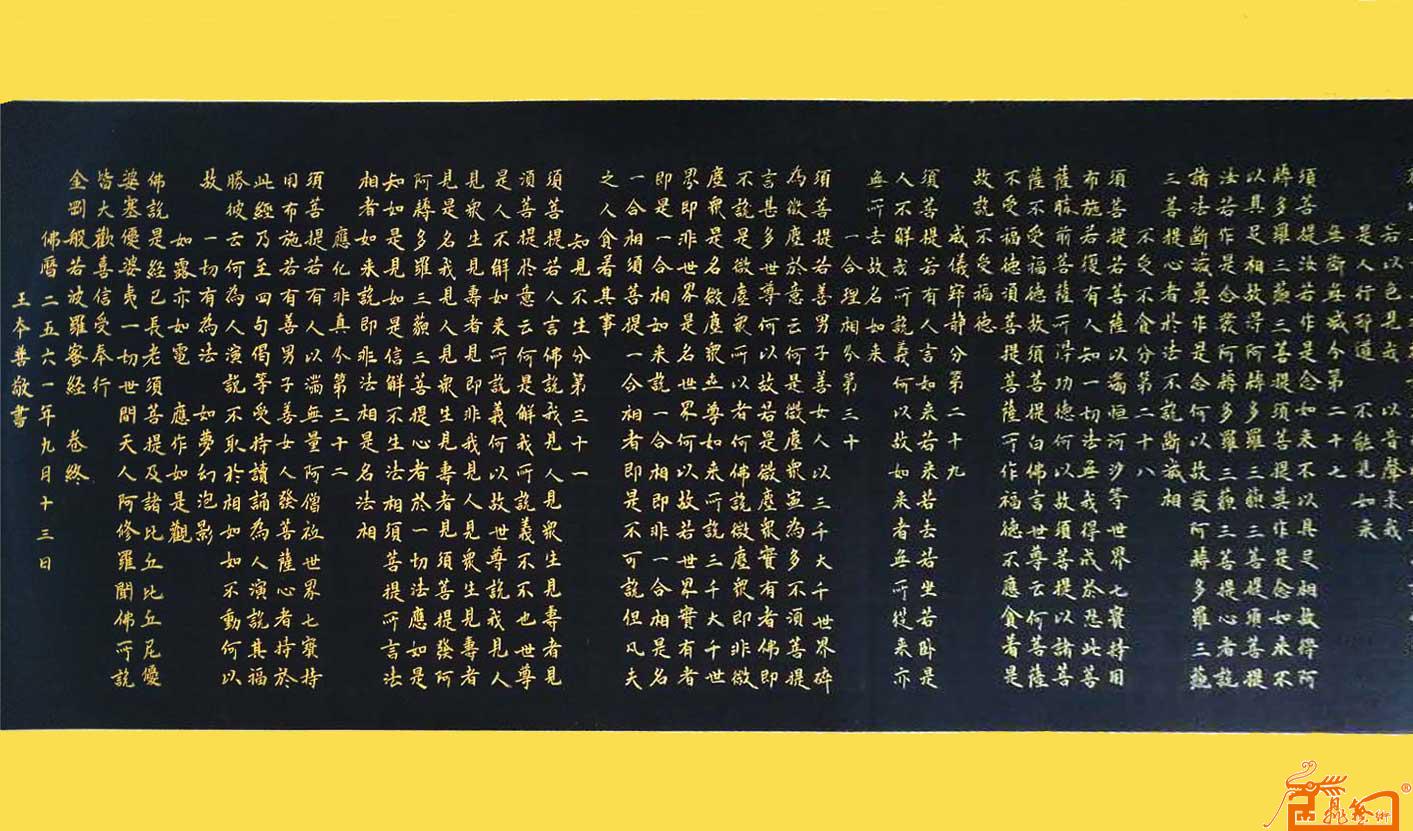 若以色見我 以音聲求我
是人行邪道 不能見如來
無斷無滅分第二十七
須菩提汝若作是念如來不以具足相故得阿
耨多羅三藐三菩提須菩提莫作是念如來不
以具足相故得阿耨多羅三藐三菩提須菩提
法若作是念發阿耨多羅三藐三菩提心者說
諸法斷滅莫作是念何以故發阿耨多羅三藐
三菩提心者於法不說斷滅相
不受不貪分第二十八
須菩提若菩薩以滿恒河沙等世界七寶持用
布施若復有人知一切法無我得成於忍此菩
薩勝前菩薩所得功德何以故須菩提以諸菩
薩不受福德故須菩提白佛言世尊云何菩薩
不受福德須菩提菩薩所作福德不應貪著是
故說不受福德
威儀寂靜分第二十九
須菩提若有人言如來若來若去若坐若卧是
人不解我所說義何以故如來者無所從來亦
無所去故名如來
一合理相分第三十
須菩提若善男子善女人以三千大千世界碎
為微塵於意云何是微塵眾寧為多不須菩提
言甚多世尊何以故若是微塵眾實有者佛即
不說是微塵眾所以者何佛說微塵眾即非微
塵眾是名微塵眾世尊如來所說三千大千世
界即非世界是名世界何以故若世界實有者
即是一合相如來說一合相即非一合相是名
一合相須菩提一合相者即是不可說但凡夫
之人貪著其事
知見不生分第三十一
須菩提若人言佛說我見人見眾生見壽者見
須菩提於意云何是人解我所說義不不也世尊
是人不解如來所說義何以故世尊說我見人
見眾生見壽者見即非我見人見眾生見壽者
見是名我見人見眾生見壽者見須菩提發阿
耨多羅三藐三菩提心者於一切法應如是
知如是見如是信解不生法相須菩提所言法
相者如來說即非法相是名法相
應化非真分第三十二
須菩提若有人以滿無量阿僧祇世界七寶持
用布施若有善男子善女人發菩薩心者持於
此經乃至四句偈等受持讀誦為人演說其福
勝彼云何為人演說不取於相如如不動何以
故
一切有為法 如夢幻泡影
如露亦如電 應作如是觀
佛說是經已長老須菩提及諸比丘比丘尼優
婆塞優婆夷一切世間天人阿修羅聞佛所說
皆大歡喜信受奉行
金剛般若波羅密經 卷終
佛曆二五六一年九月十三日
王本善敬書